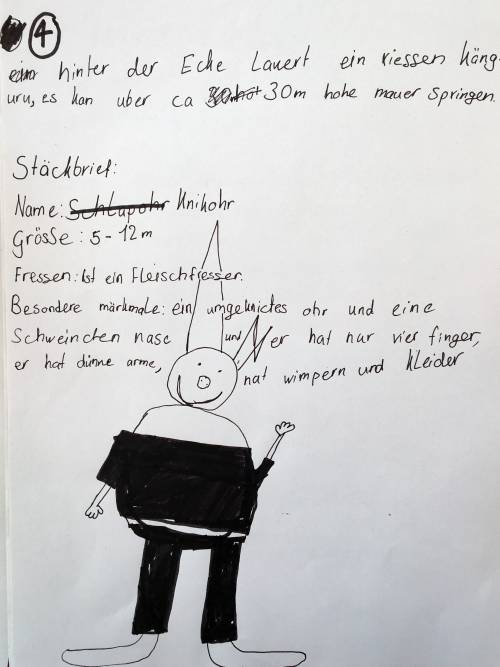 4
hinter der Ecke Lauert ein riessen Käng-
uru, es kan uber ca 30m hohe mauer springen.
Stäckbrief:
Name: Schlapohr Knikohr
Grösse: 5-12m
Fressen: ist ein Fleischfresser.
Besondere märkmale: ein umgeknictes ohr und eine
Schweincten nase und er hat nur vier finger,
er hat dünne arme, hat wimpern und kleider